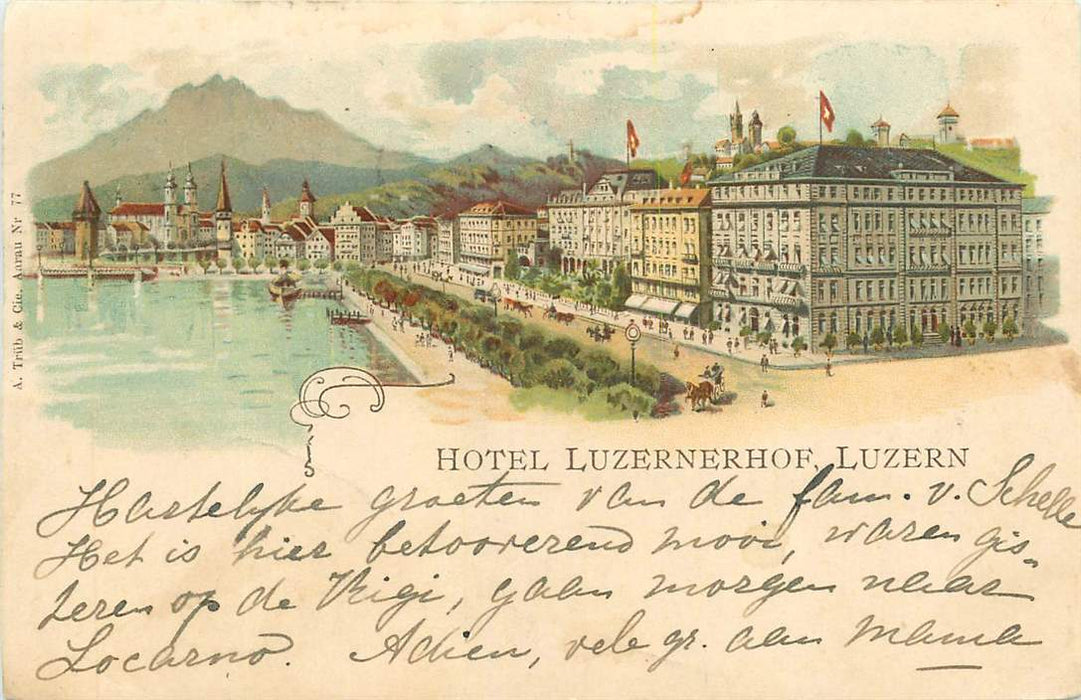 A. Trüb & Cie. Aarau Nr 77
HOTEL LUZERNERHOF, LUZERN
Hartelijke groeten van de fam. v. Schelle
Het is hier betooverend mooi, waren gis=
teren op de Rigi, gaan morgen naar
Locarno. Adieu, vele gr. aan Mama